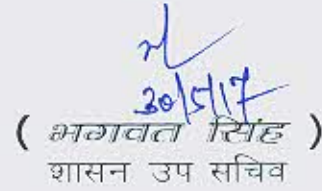 30/5/17
( भगवत सिंह )
शासन उप सचिव